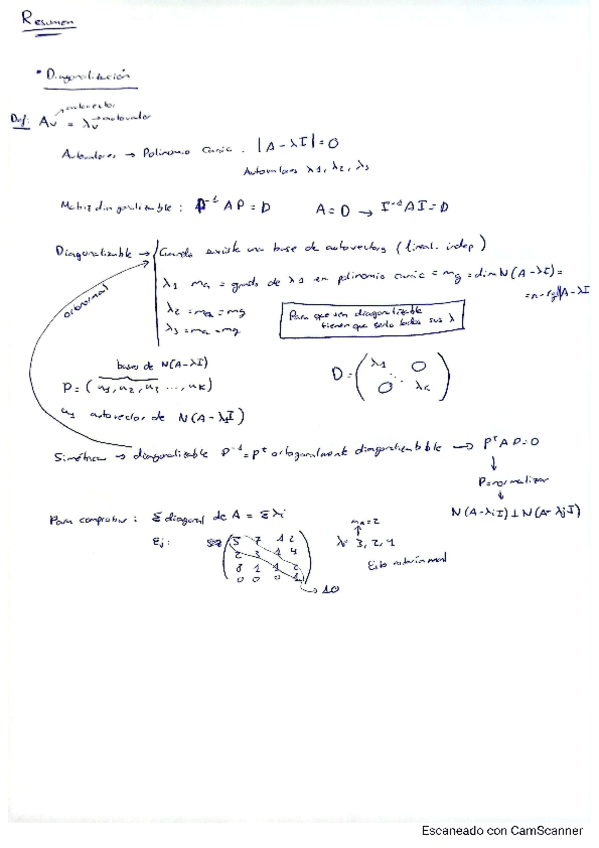 Resumen
• Diagonalización
Def: Av = λv → autovalor
→ autovector
Autovalores → Polinomio Carac. |A-λI|=0
Autovalores λ1, λ2, λ3
Matriz diagonalizable: P⁻¹AP=D A=D → I⁻¹AI=D
Diagonalizable → Cuando existe una base de autovectores (lineal. indep)
ortonormal
λ1 ma = grado de λ1 en polinomio carac = mg = dim N(A-λI) =
= n-rg|A-λI
λ2 = ma = mg
λ3 = ma = mg
Para que sea diagonalizable
tienen que serlo todos sus λ
bases de N(A-λI)
P = (u1, u2, u3 ..., uk)
D = (λ1 0 ⋱ 0 λk)
u1 autovector de N(A-λ1I)
Simétrica → diagonalizable P⁻¹=Pᵗ ortogonalmente diagonalizable → PᵗAP=D
↓
P=normalizar
↓
N(A-λiI)⊥N(A-λjI)
Para comprobar: Σ diagonal de A = Σλi
ma=2
Ej: 5 7 1 2
λ 3, 2, 1
2 3 1 4
Esto estaría mal
8 1 1 2
0 0 0 1
→ 10
Escaneado con CamScanner